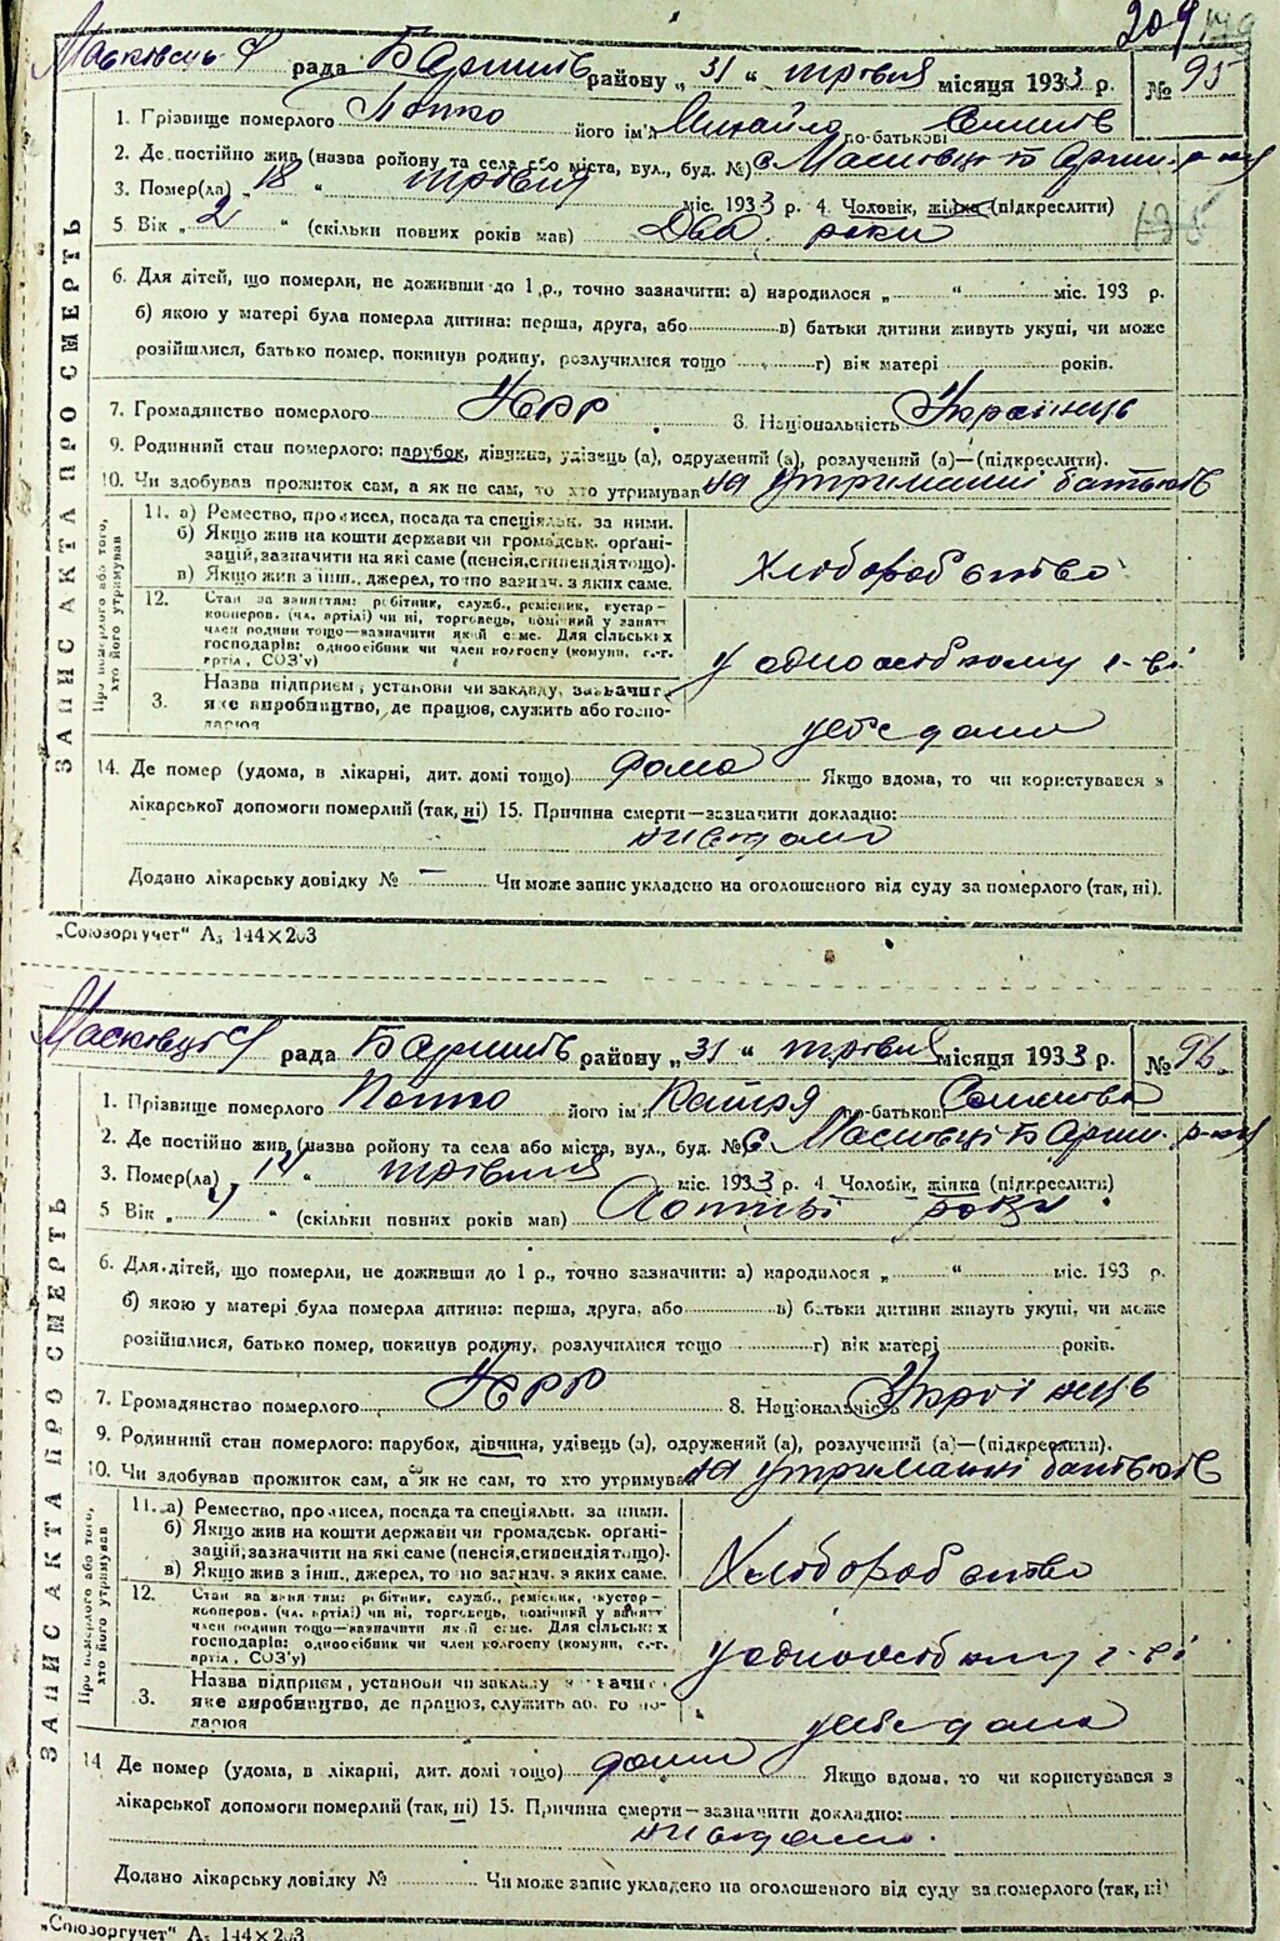 209
рада Баришів району „31“ травня місяця 1933 р. № 95
ЗАПИС АКТА ПРО СМЕРТЬ
1. Грізвище померлого Попко його ім'я Михайло по-батькові
2. Де постійно жив (назва ройону та села або міста, вул., буд. №) с. Масківці Бариш. р-ну
3. Помер(ла) „18“ травня міс. 1933 р. 4. Чоловік, жінка (підкреслити)
5 Вік „2“ (скільки повних років мав) Два роки
6. Для дітей, що померли, не доживши до 1 р., точно зазначити: а) народилося „ “ міс. 193 р.
б) якою у матері була померла дитина: перша, друга, або в) батьки дитини живуть укупі, чи може
розійшлися, батько помер, покинув родину, розлучилися тощо г) вік матері років.
7. Громадянство померлого УСРР 8. Національність Українець
9. Родинний стан померлого: парубок, дівчина, удівець (а), одружений (а), розлучений (а)—(підкреслити).
10. Чи здобував прожиток сам, а як не сам, то хто утримував на утриманні батьків
Про померлого або того, хто його утримував
11. а) Ремество, промисел, посада та спеціяльн. за ними.
б) Якщо жив на кошти держави чи громадськ. орґані-
зацій, зазначити на які саме (пенсія, стипендія тощо).
в) Якщо жив з інш., джерел, точно зазнач. з яких саме.
Хліборобство
12. Стан за заняттям: робітник, служб., ремісник, кустар—
кооперов. (чл. артілі) чи ні, торговець, помічний у занятт
член родини тощо—зазначити який саме. Для сільських
господарів: одноосібник чи член колгоспу (комуни, с.-г.
артіл, СОЗ'у)
у одноосібному г-ві
3. Назва підприєм, установи чи закладу, зазначит
яке виробництво, де працюв, служить або госпо-
дарюя
14. Де помер (удома, в лікарні, дит. домі тощо) дома Якщо вдома, то чи користувався з
лікарської допомоги померлий (так, ні) 15. Причина смерти—зазначити докладно:
Додано лікарську довідку № — Чи може запис укладено на оголошеного від суду за померлого (так, ні).
„Союзоргучет“ А₅ 144×203
рада Баришів району „31“ травня місяця 1933 р. № 96.
ЗАПИС АКТА ПРО СМЕРТЬ
1. Прізвище померлого Попко його ім'я Катря по-батькові
2. Де постійно жив (назва ройону та села або міста, вул., буд. №) с. Масківці Бариш. р-ну
3. Помер(ла) травня міс. 1933 р. 4. Чоловік, жінка (підкреслити)
5 Вік „ “ (скільки повних років мав) роки
6. Для дітей, що померли, не доживши до 1 р., точно зазначити: а) народилося „ “ міс. 193 р.
б) якою у матері була померла дитина: перша, друга, або в) батьки дитини живуть укупі, чи може
розійшлися, батько помер, покинув родину, розлучилися тощо г) вік матері років.
7. Громадянство померлого УСРР 8. Національність Українець
9. Родинний стан померлого: парубок, дівчина, удівець (а), одружений (а), розлучений (а)—(підкреслити).
10. Чи здобував прожиток сам, а як не сам, то хто утримував на утриманні батьків
Про померлого або того, хто його утримував
11. а) Ремество, промисел, посада та спеціяльн. за ними.
б) Якщо жив на кошти держави чи громадськ. орґані-
зацій, зазначити на які саме (пенсія, стипендія тощо).
в) Якщо жив з інш., джерел, точно зазнач. з яких саме.
Хліборобство
12. Стан за заняттям: робітник, служб., ремісник, кустар—
кооперов. (чл. артілі) чи ні, торговець, помічний у занятт
член родини тощо—зазначити який саме. Для сільських
господарів: одноосібник чи член колгоспу (комуни, с.-г.
артіл, СОЗ'у)
у одноосібному г-ві
3. Назва підприєм, установи чи закладу зазначит
яке виробництво, де працюв, служить або госпо-
дарюя
14 Де помер (удома, в лікарні, дит. домі тощо) Якщо вдома, то чи користувався з
лікарської допомоги померлий (так, ні) 15. Причина смерти—зазначити докладно:
Додано лікарську довідку № Чи може запис укладено на оголошеного від суду за померлого (так, ні)
„Союзоргучет“ А₅ 144×203